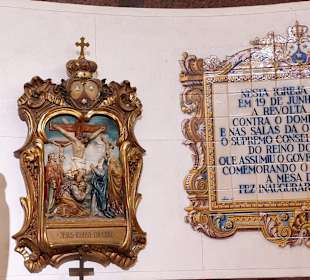 NESTA IGREJA
EM 19 DE JUNH
A REVOLTA
CONTRA O DOMI
E NAS SALAS DA O
O SUPREMO CONSEL
DO REINO DO
QUE ASSUMIU O GOVE
COMEMORANDO O
A MESA D
FEZ INAUGURAR